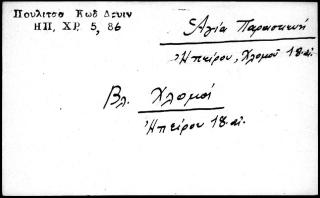 Πουλιτσα Κωδ Δευιν
ΗΠ, ΧΡ. 5, 86
Ἁγία Παρασκευή
Ἠπείρου, Χλομοῦ 18 αἰ.
Βλ. Χλομοί
Ἠπείρου 18 αἰ.